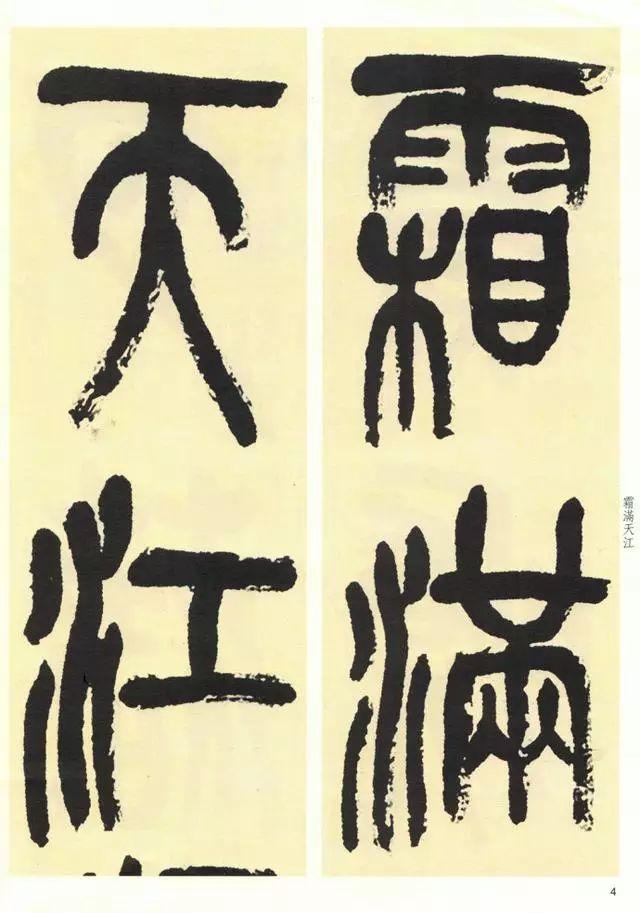 霜滿
天江
霜滿天江
4